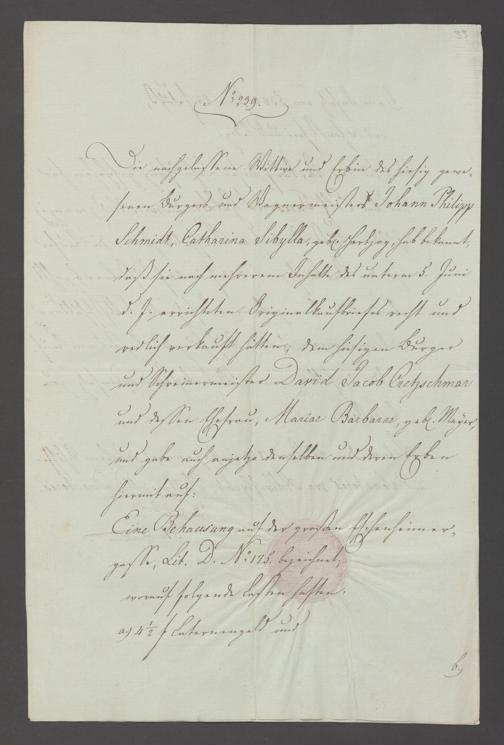 33
No. 239.
Die nachgelassene Wittwe und Erbin des hiesig gewe-
senen Burgers und Wagnermeisters Johann Philipp
Schmidt, Catharina Sibylla, geb. Hertzog, hab bekannt,
daß sie nach mehrerem Inhalte des unterm 5. Juni
d. J. errichteten Originalkaufbriefes recht und
redlich verkauft hätten, dem hiesigen Burger
und Schreinermeister David Jacob Cretzschmar
und dessen Ehefrau, Mariae Barbarae, geb. Mayer,
und gabe auch anjetzo denselben und deren Erben
hiermit auf:
Eine Behausung auf der großen Eschenheimer-
gasse, Lit. D. No. 175. bezeichnet,
worauf folgende Lasten haften.
a) 4 1/2 f Laternengeld und
b)